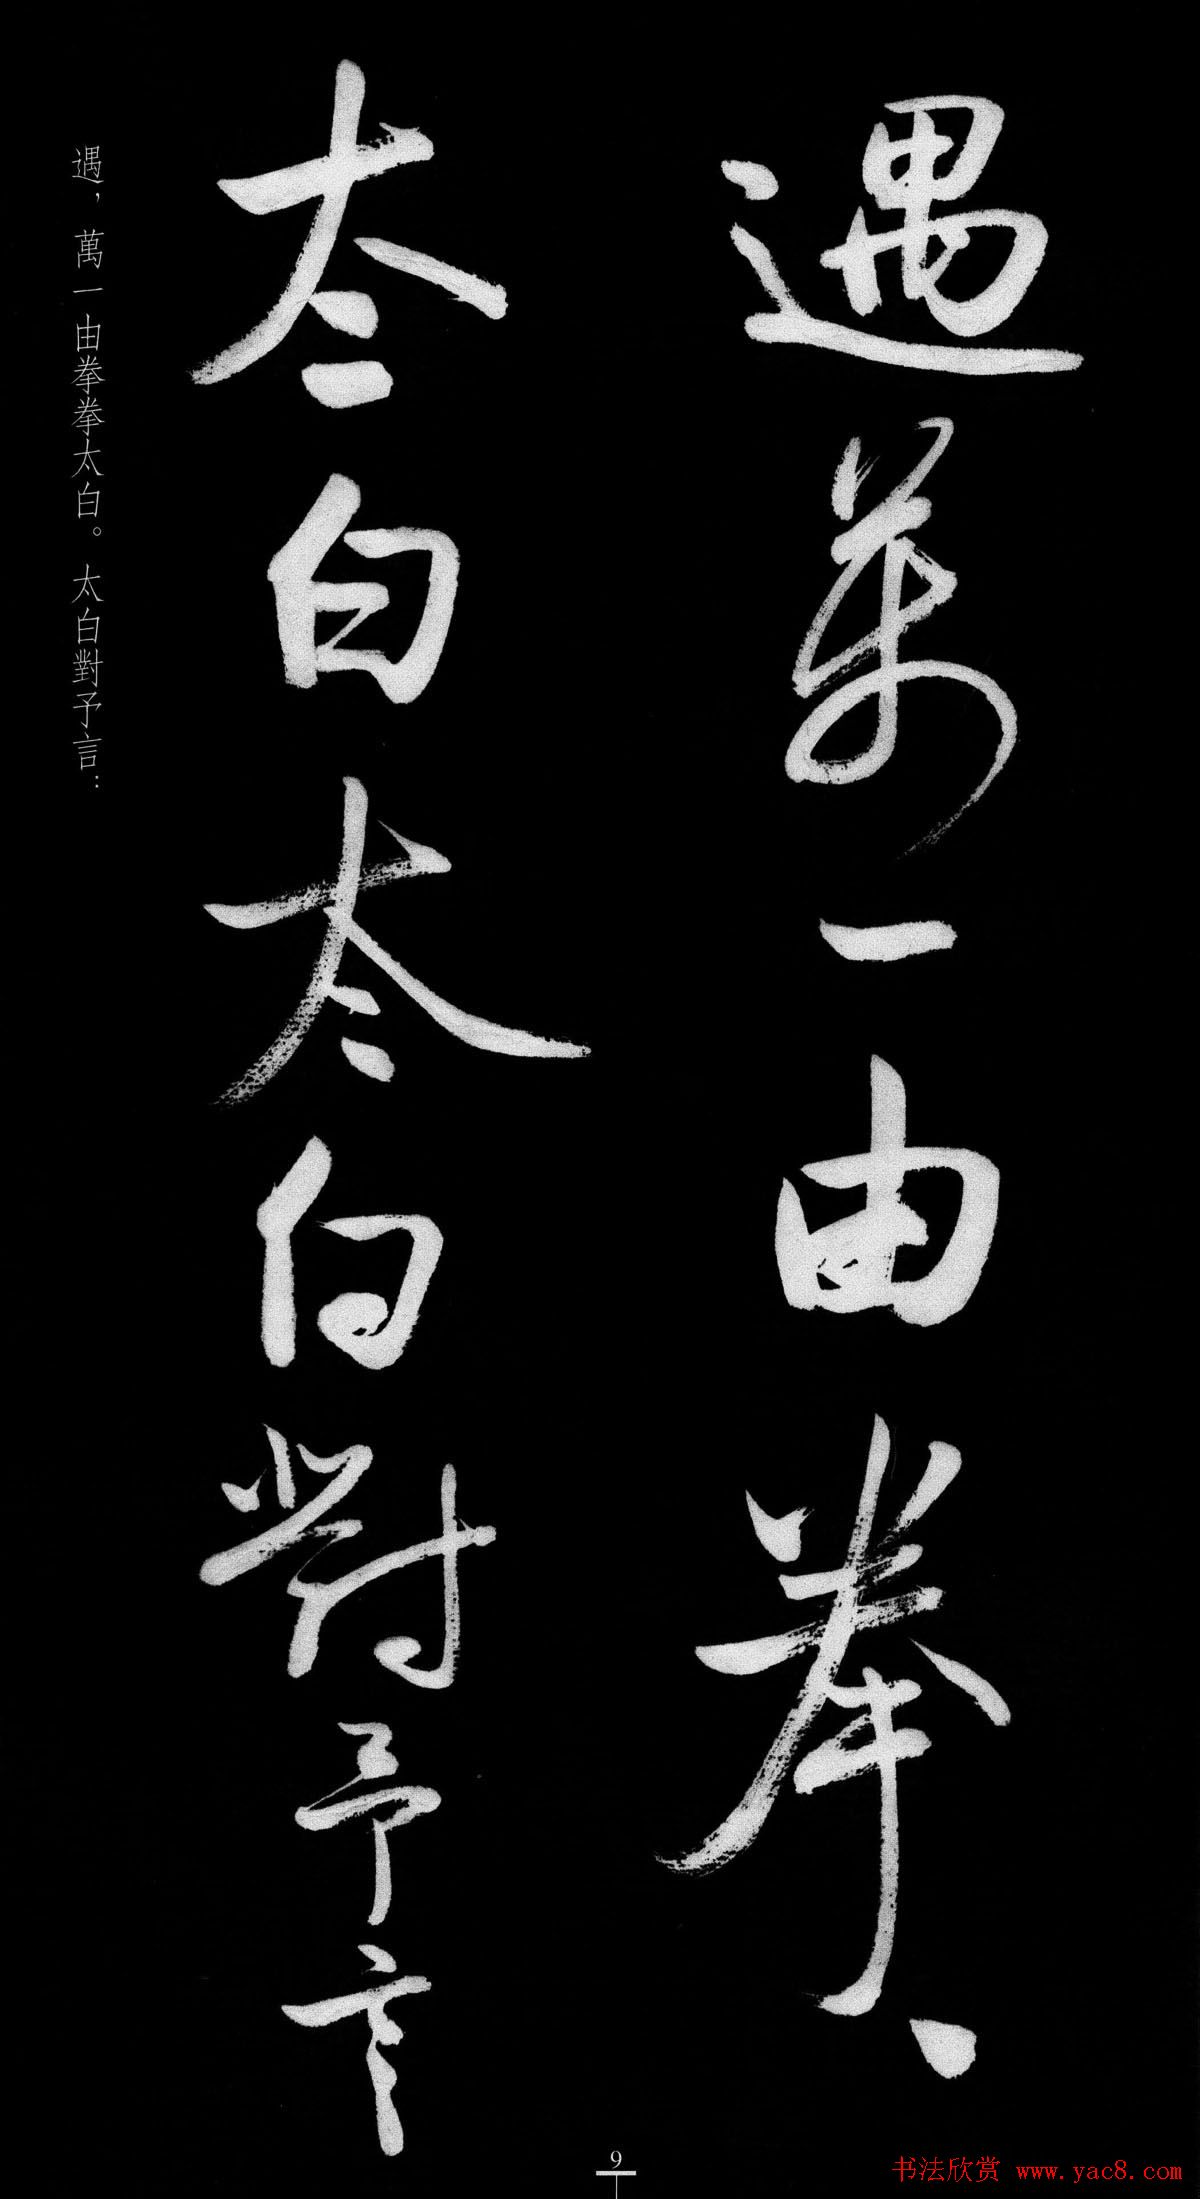 遇萬一由拳、
太白太白對予言
遇，萬一由拳拳太白。太白對予言：
9
书法欣赏 www.yac8.com